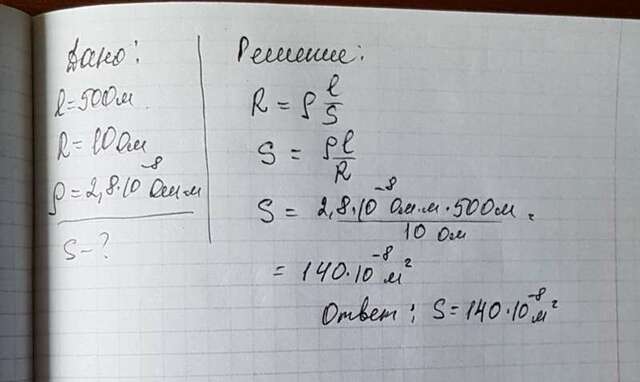 Дано:
l=500м
R=10Ом
ρ=2,8·10⁻⁸ Ом·м
S-?
Решение:
R = ρ l/S
S = ρl/R
S = 2,8·10⁻⁸ Ом·м·500м / 10 Ом =
= 140·10⁻⁸ м²
Ответ: S=140·10⁻⁸ м²